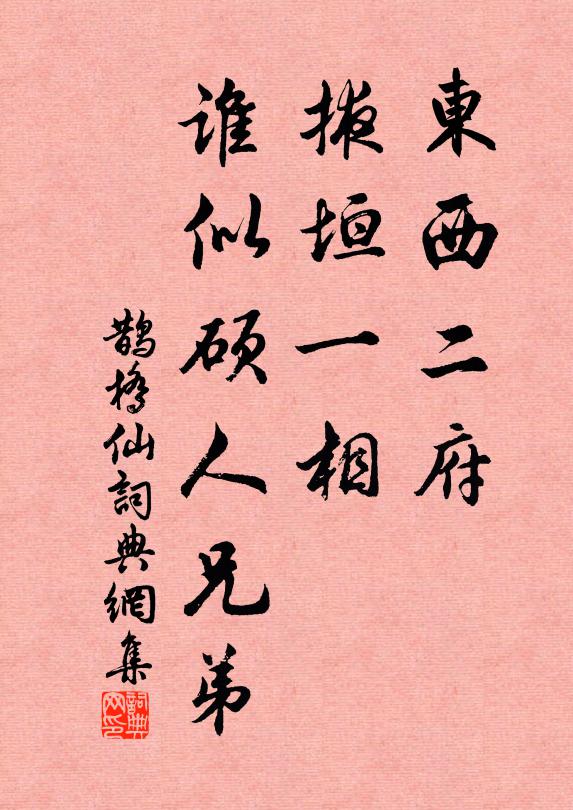 東西二府
掖垣一相
誰似碩人兄弟
鵲橋仙詞典網集
詞典网印